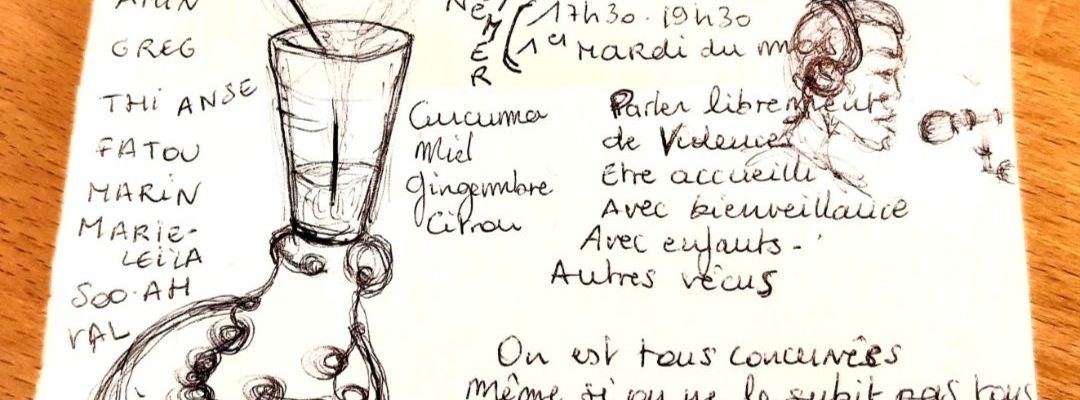 GREG
THI ANSE
FATOU
MARIN
MARIE-
LEÏLA
SOO-AH
VAL
17h30 - 19h30
1er Mardi du mois
Curcuma
Miel
Gingembre
Citron
Parler librement
de Violences
Etre accueilli
Avec bienveillance
Avec enfants -
Autres vécus
On est tous concernées
Même si on ne le subit pas tous